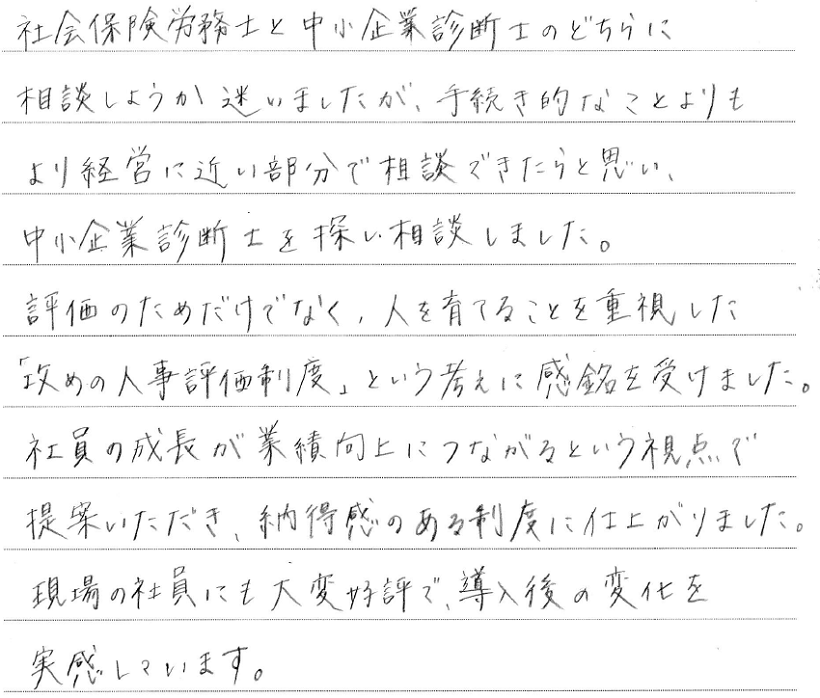 社会保険労務士と中小企業診断士のどちらに
相談しようか迷いましたが、手続き的なことよりも
より経営に近い部分で相談できたらと思い、
中小企業診断士を探し相談しました。
評価のためだけでなく、人を育てることを重視した
「攻めの人事評価制度」という考えに感銘を受けました。
社員の成長が業績向上につながるという視点で
提案いただき、納得感のある制度に仕上がりました。
現場の社員にも大変好評で、導入後の変化を
実感しています。